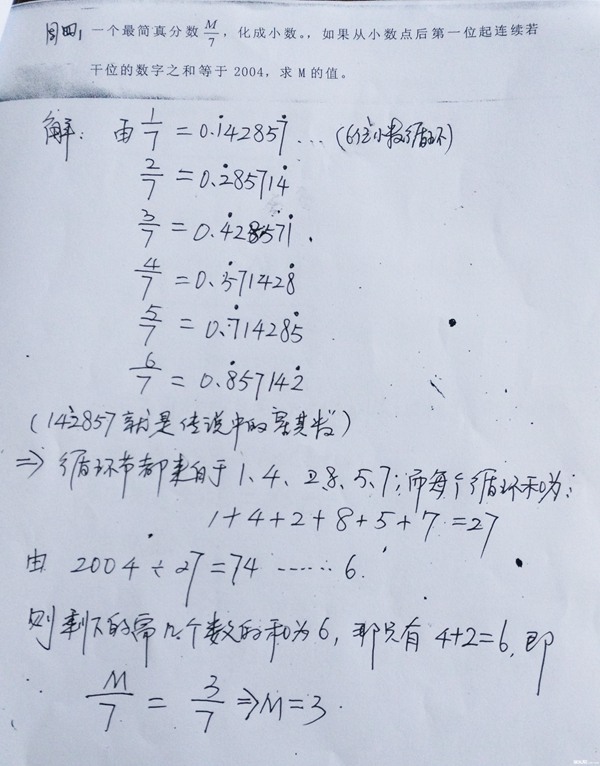 图四, 一个最简真分数 M/7 ，化成小数。，如果从小数点后第一位起连续若
干位的数字之和等于 2004，求 M 的值。
解: 由 1/7 = 0.1̇42857̇ ... (6位小数循环)
2/7 = 0.2̇85714̇
3/7 = 0.4̇28571̇.
4/7 = 0.5̇71428̇
5/7 = 0.7̇14285̇
6/7 = 0.8̇57142̇
(142857就是传说中的
⇒ 循环节都来自于1、4、2、8、5、7; 而每个循环和为:
1+4+2+8+5+7=27
由 2004÷27=74 …… 6.
则剩下的需几个数的和为6, 那只有 4+2=6, 即
M/7 = 3/7 ⇒ M=3.